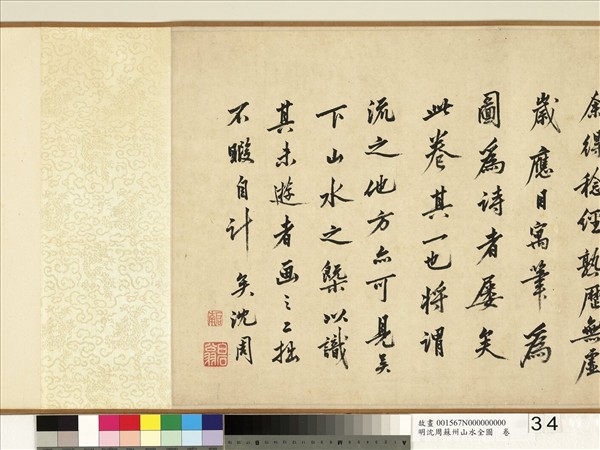 余得稔經熟歷無虛
歲應目寓筆為
圖為詩者屢矣
此卷其一也將謂
流之他方亦可見吴
下山水之槩以識
其未遊者画之工拙
不暇自計矣沈周
白石翁
故畫 001567N000000000
明沈周蘇州山水全圖 卷
34